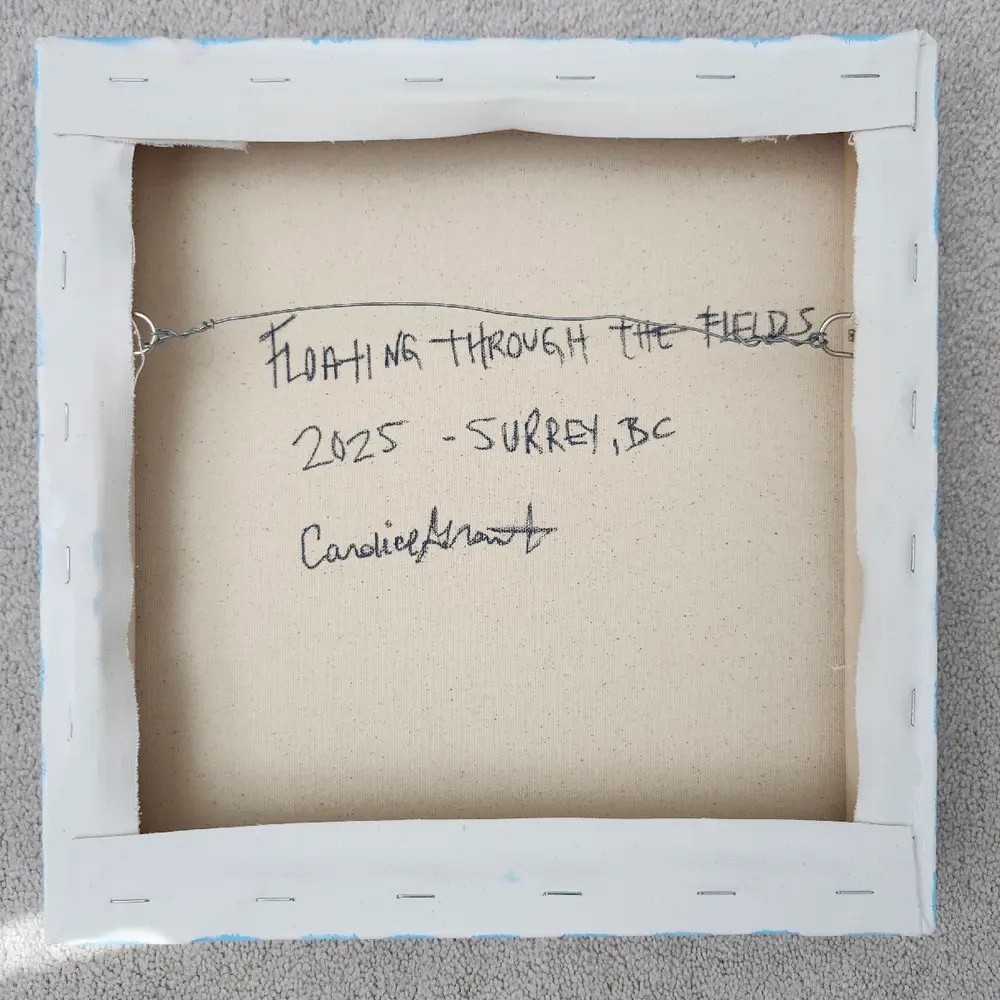 FLOATING THROUGH THE FIELDS
2025 - SURREY, BC
Candice Grant